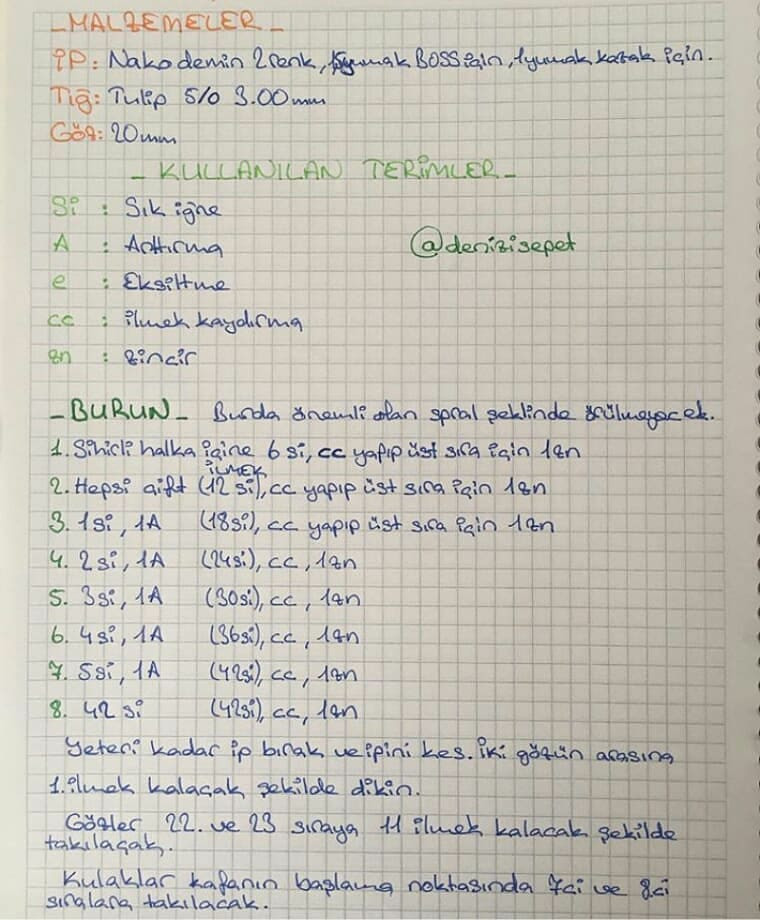 _MALZEMELER_
İP: Nako demin 2 renk, yumak BOSS için, 1 yumak kazak için.
Tığ: Tulip 5/0 3.00mm
Göz: 20mm
_ KULLANILAN TERİMLER _
Si : Sık iğne
A : Arttırma
@denizisepet
e : Eksiltme
cc : ilmek kaydırma
zn : zincir
_BURUN_ Burda önemli olan spral şeklinde örülmeyecek.
1. Sihirli halka içine 6 si, cc yapıp üst sıra için 1zn
İLMEK
2. Hepsi çift (12 si), cc yapıp üst sıra için 1zn
3. 1si, 1A (18si), cc yapıp üst sıra için 1zn
4. 2si, 1A (24si), cc, 1zn
5. 3si, 1A (30si), cc, 1zn
6. 4si, 1A (36si), cc, 1zn
7. 5si, 1A (42si), cc, 1zn
8. 42 si (42si), cc, 1zn
Yeteri kadar ip bırak ve ipini kes. İki gözün arasına
1. ilmek kalacak şekilde dikin.
Gözler 22. ve 23 sıraya 11 ilmek kalacak şekilde
takılacak.
Kulaklar kafanın başlama noktasında 7ci ve 8ci
sıralara takılacak.